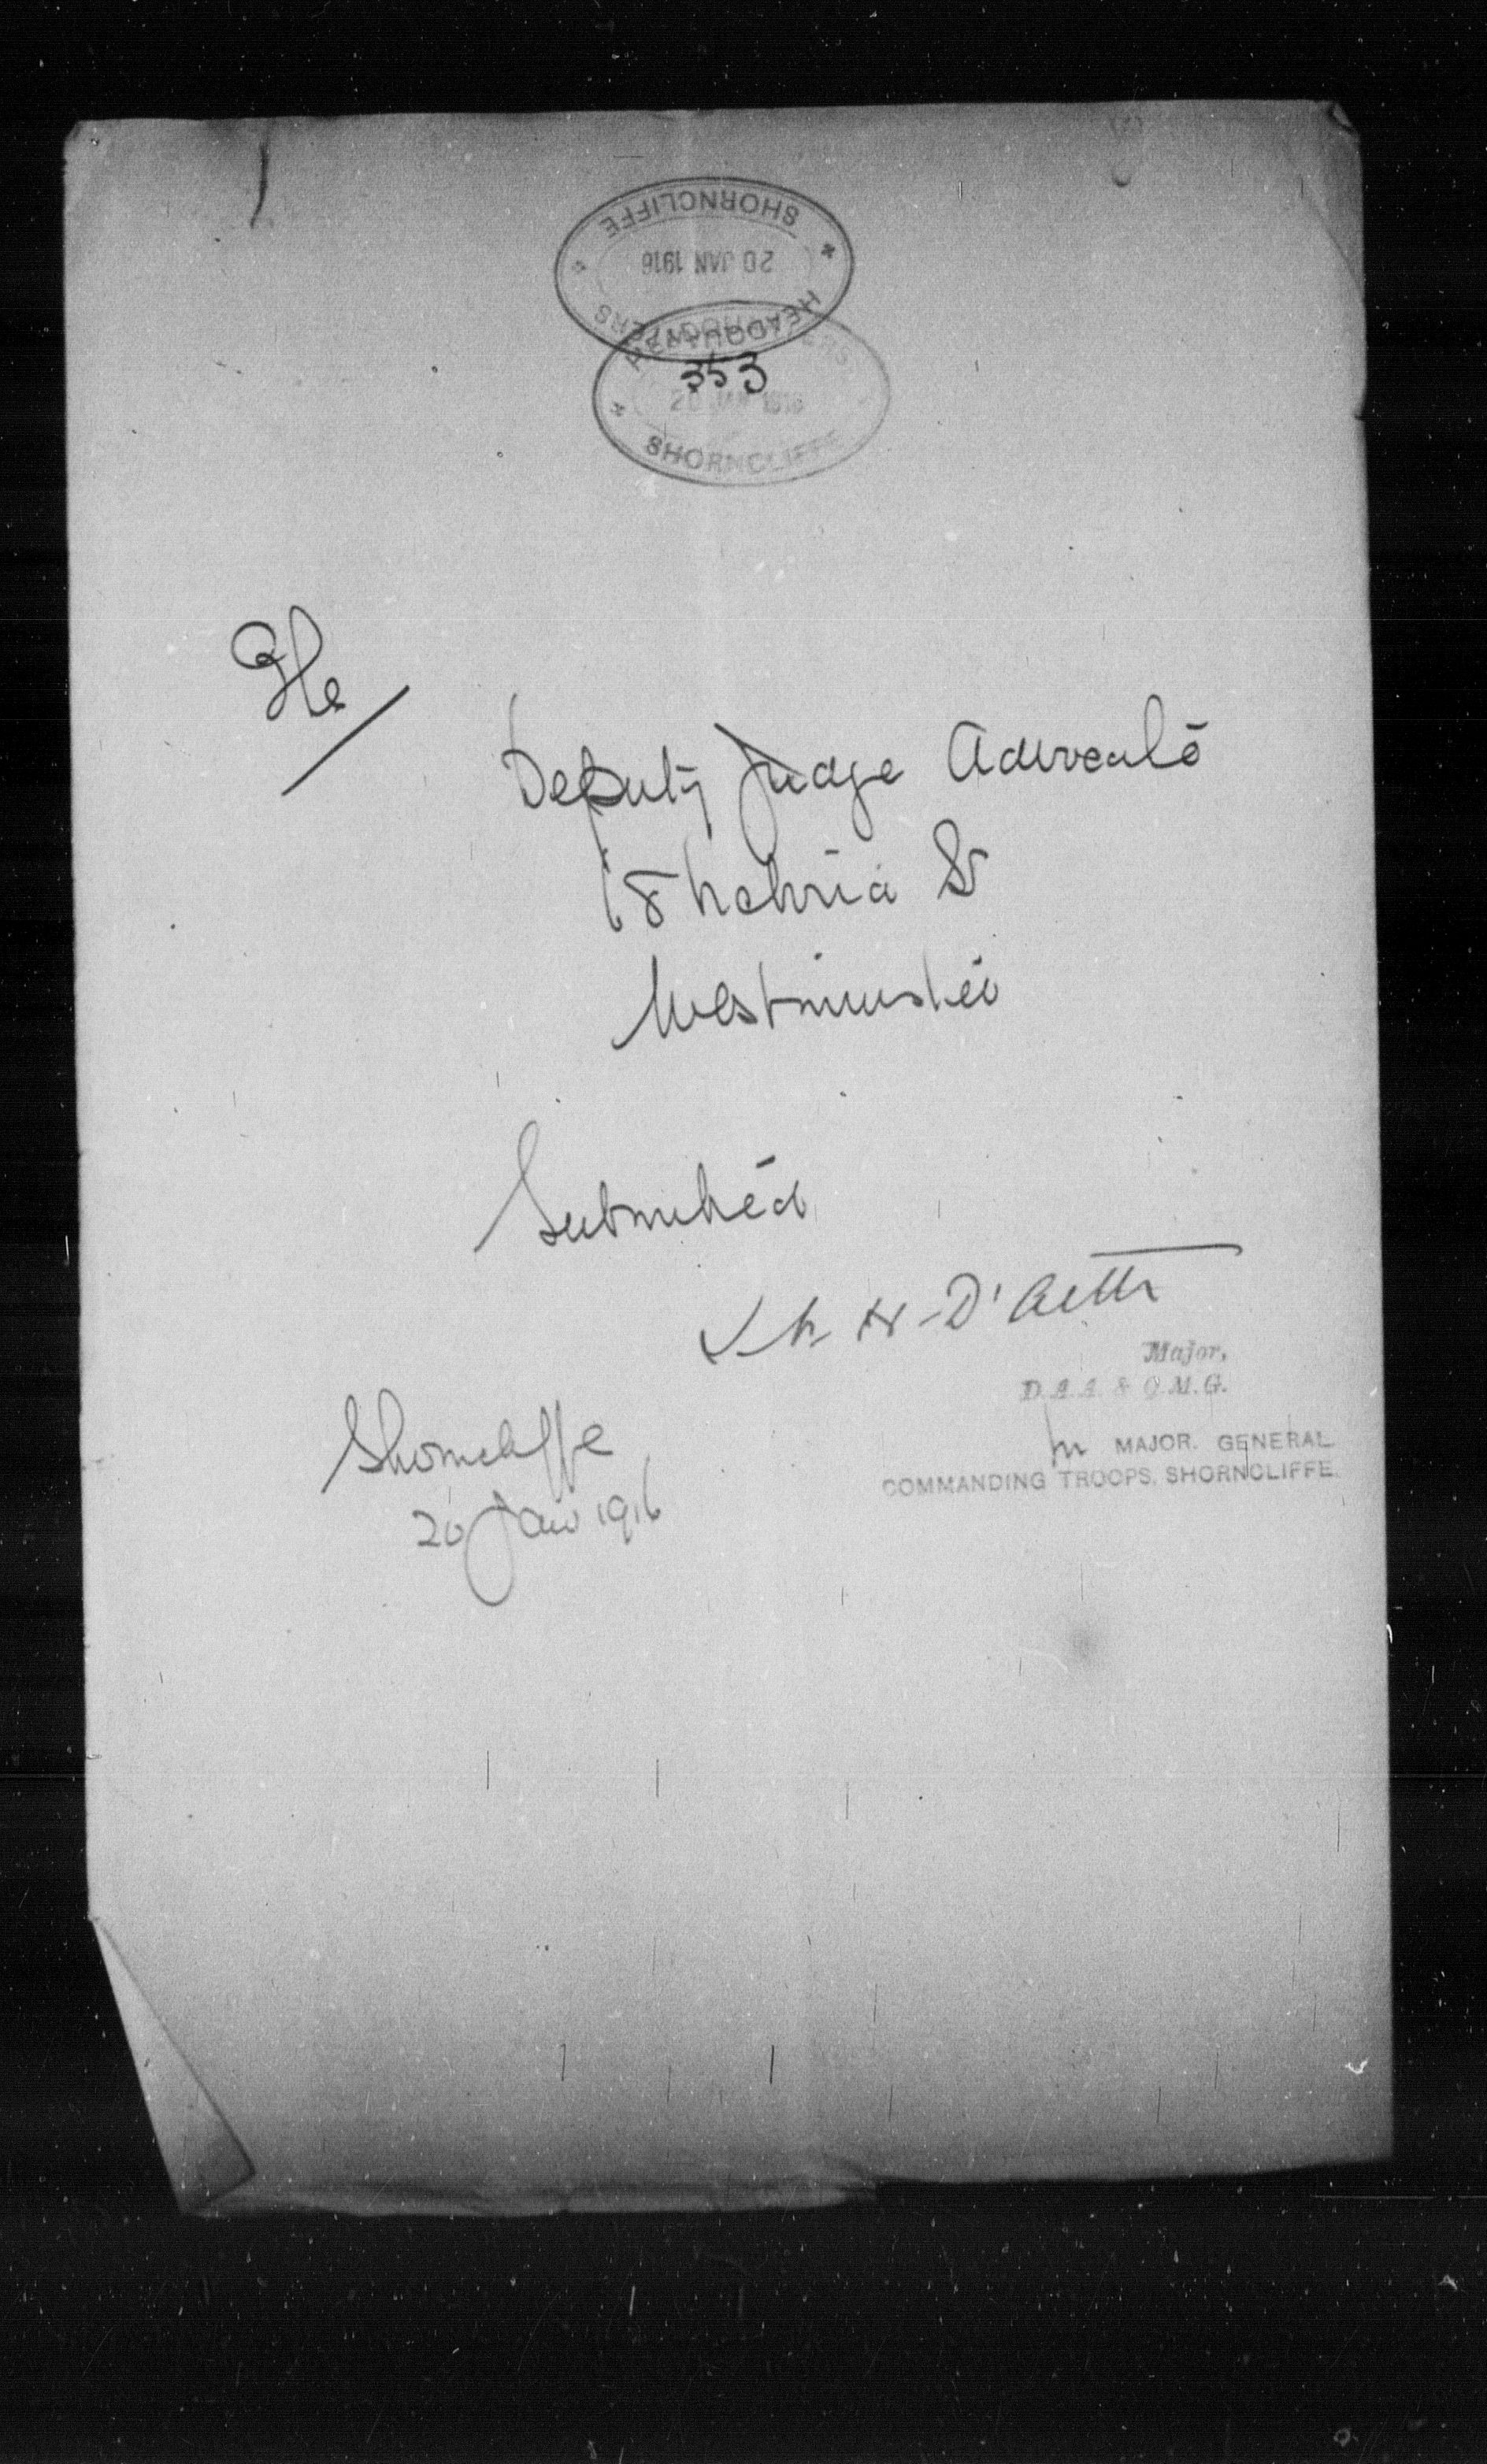 SHORNCLIFFE
20 JAN 1916
HEADQUARTERS
HEADQUARTERS
353
20 JAN 1916
SHORNCLIFFE
The
Deputy Judge Advocate
68 Victoria St
Westminster
Submitted
D'
Major,
D.A.A. & Q.M.G.
for MAJOR. GENERAL
COMMANDING TROOPS, SHORNCLIFFE.
Shorncliffe
20 Jan 1916